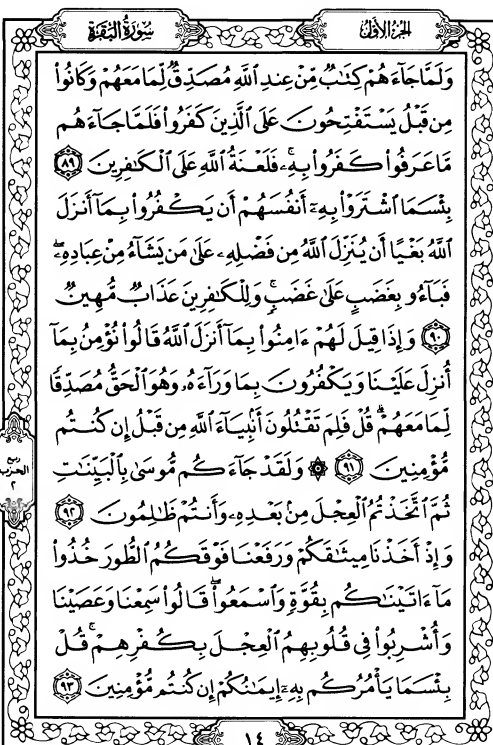 سُورَةُ البَقَرَةِ
الجُزءُ الأَوَّلُ
وَلَمَّا جَآءَهُمْ كِتَٰبٌ مِّنْ عِندِ ٱللَّهِ مُصَدِّقٌ لِّمَا مَعَهُمْ وَكَانُوا۟
مِن قَبْلُ يَسْتَفْتِحُونَ عَلَى ٱلَّذِينَ كَفَرُوا۟ فَلَمَّا جَآءَهُم
مَّا عَرَفُوا۟ كَفَرُوا۟ بِهِۦ ۚ فَلَعْنَةُ ٱللَّهِ عَلَى ٱلْكَٰفِرِينَ ٨٩
بِئْسَمَا ٱشْتَرَوْا۟ بِهِۦٓ أَنفُسَهُمْ أَن يَكْفُرُوا۟ بِمَآ أَنزَلَ
ٱللَّهُ بَغْيًا أَن يُنَزِّلَ ٱللَّهُ مِن فَضْلِهِۦ عَلَىٰ مَن يَشَآءُ مِنْ عِبَادِهِۦ ۖ
فَبَآءُو بِغَضَبٍ عَلَىٰ غَضَبٍ ۚ وَلِلْكَٰفِرِينَ عَذَابٌ مُّهِينٌ
٩٠ وَإِذَا قِيلَ لَهُمْ ءَامِنُوا۟ بِمَآ أَنزَلَ ٱللَّهُ قَالُوا۟ نُؤْمِنُ بِمَآ
أُنزِلَ عَلَيْنَا وَيَكْفُرُونَ بِمَا وَرَآءَهُۥ وَهُوَ ٱلْحَقُّ مُصَدِّقًا
لِّمَا مَعَهُمْ ۗ قُلْ فَلِمَ تَقْتُلُونَ أَنۢبِيَآءَ ٱللَّهِ مِن قَبْلُ إِن كُنتُم
مُّؤْمِنِينَ ٩١ ۞ وَلَقَدْ جَآءَكُم مُّوسَىٰ بِٱلْبَيِّنَٰتِ
ثُمَّ ٱتَّخَذْتُمُ ٱلْعِجْلَ مِنۢ بَعْدِهِۦ وَأَنتُمْ ظَٰلِمُونَ ٩٢
وَإِذْ أَخَذْنَا مِيثَٰقَكُمْ وَرَفَعْنَا فَوْقَكُمُ ٱلطُّورَ خُذُوا۟
مَآ ءَاتَيْنَٰكُم بِقُوَّةٍ وَٱسْمَعُوا۟ ۖ قَالُوا۟ سَمِعْنَا وَعَصَيْنَا
وَأُشْرِبُوا۟ فِى قُلُوبِهِمُ ٱلْعِجْلَ بِكُفْرِهِمْ ۚ قُلْ
بِئْسَمَا يَأْمُرُكُم بِهِۦٓ إِيمَٰنُكُمْ إِن كُنتُم مُّؤْمِنِينَ ٩٣
ربع
الحزب
٢
١٤